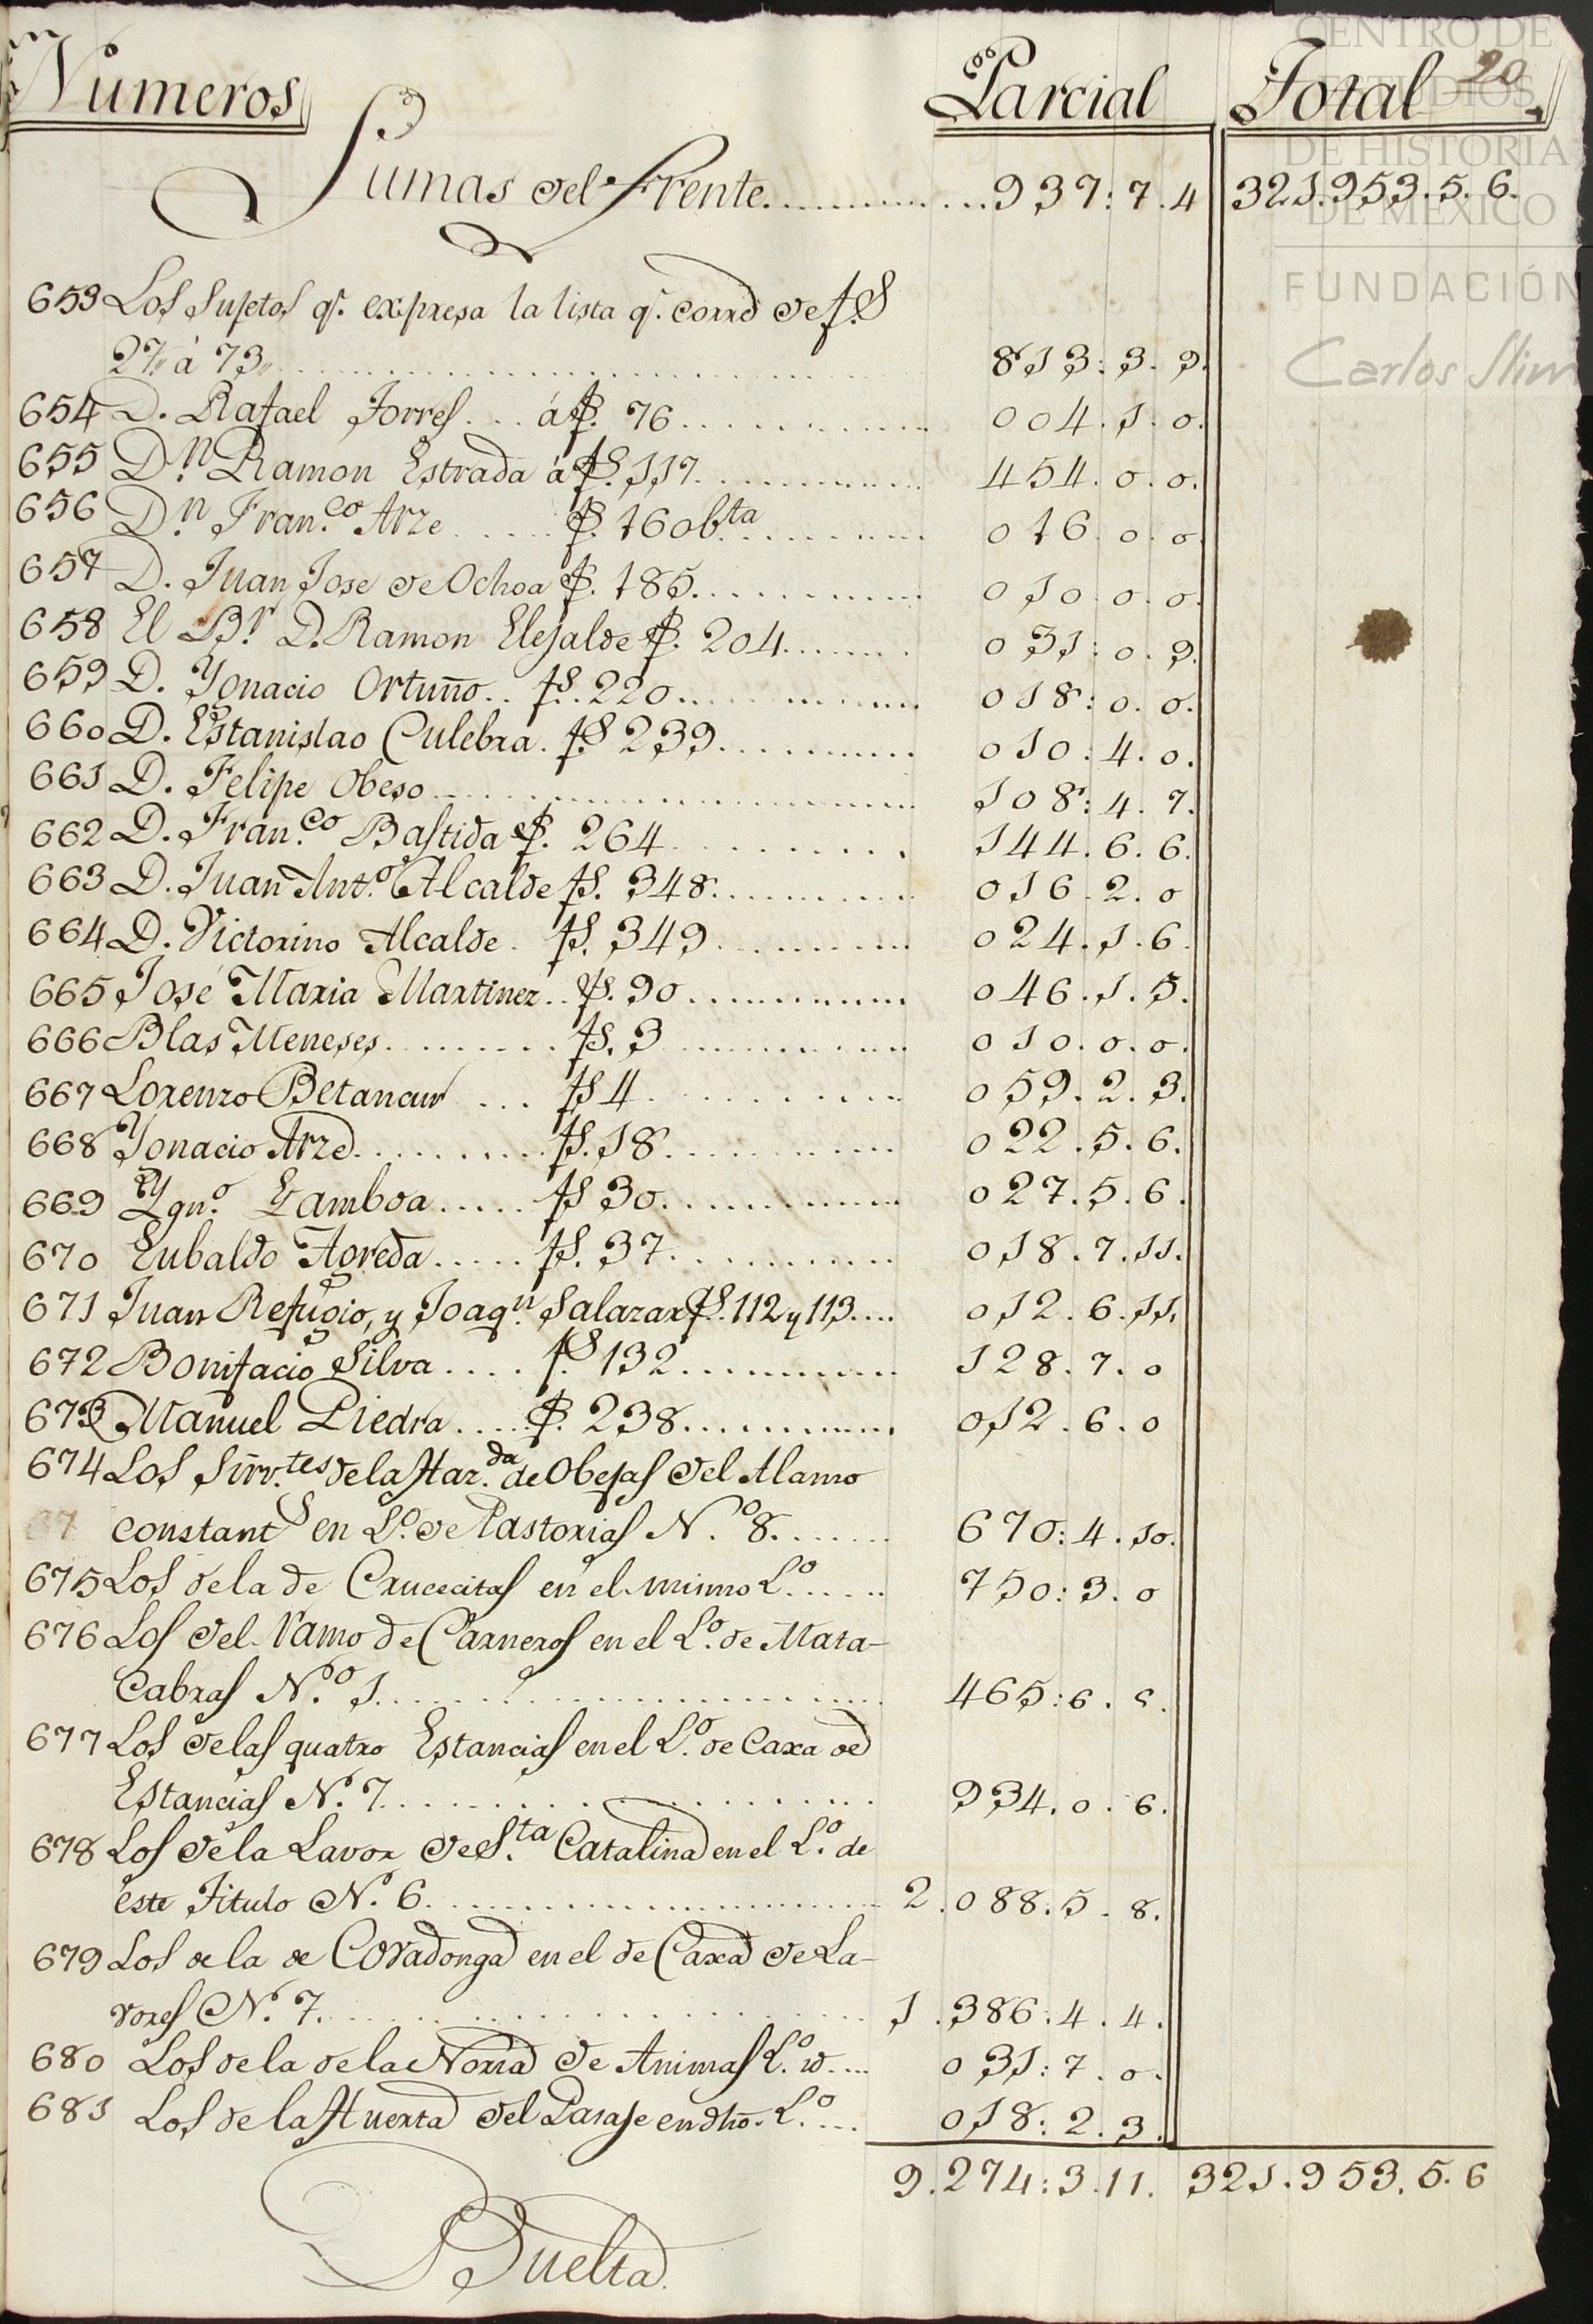 Numeros Parcial Total 20
Sumas del Frente............. 937:7.4 321.953.5.6.
653 Los Sujetos q.e expresa la lista q.e corre de f.s
27,, á 73,, ............ 813:3.9.
654 D. Rafael Torres.... á f.s 76............ 004.1.0.
655 D.n Ramon Estrada á f.s 117............ 454.0.0.
656 D.n Fran.co Arze...... f.s 160 b.ta.......... 016.0.0.
657 D. Juan Jose de Ochoa f.s 185............ 010.0.0.
658 El B.r D. Ramon Elejalde f.s 204....... 031:0.9.
659 D. Ygnacio Ortuño.. f.s 220............ 018:0.0.
660 D. Estanislao Culebra. f.s 239........... 010:4.0.
661 D. Felipe Obeso........................ 108:4.7.
662 D. Fran.co Bastida f.s 264........... 144.6.6.
663 D. Juan Ant.o Alcalde f.s 348........... 016.2.0
664 D. Victorino Alcalde. f.s 349........... 024.1.6.
665 José Maria Martinez.. f.s 90............ 046.1.5.
666 Blas Meneses.......... f.s 3........... 010.0.0.
667 Lorenzo Betancur ... f.s 4........... 059.2.3.
668 Ygnacio Arze........... f.s 18........... 022.5.6.
669 Ygn.o Gamboa..... f.s 30............ 027.5.6.
670 Eubaldo Agreda..... f.s 37........... 018.7.11.
671 Juan Refugio, y Joaq.n Salazar f.s 112 y 113.... 012.6.11.
672 Bonifacio Silva.... f.s 132............ 128.7.0
673 Manuel Piedra..... f.s 238............ 012.6.0
674 Los Sirv.tes de la Haz.da de Obejas del Alamo
67 constant.s en L.o de Pastorias N.o 8....... 670:4.10.
675 Los de la de Crucecitas en el mismo L.o..... 750:3.0
676 Los del ramo de Carneros en el L.o de Mata-
Cabras N.o 1........................ 465:6.
677 Los de las quatro Estancias en el L.o de Caxa de
Estancias N.o 7.................... 934.0.6.
678 Los de la Lavor de S.ta Catalina en el L.o de
este Titulo N.o 6...................... 2.088.5.8.
679 Los de la de Covadonga en el de Caxa de La-
vores N.o 7........................ 1.386:4.4.
680 Los de la de la Noria de Animas L.o id.... 031:7.0.
681 Los de la Huerta del Parage en dho. L.o... 018:2.3.
9.274:3.11. 321.953.5.6
Buelta
CENTRO DE
ESTUDIOS
DE HISTORIA
DE MEXICO
FUNDACIÓN
Carlos Slim